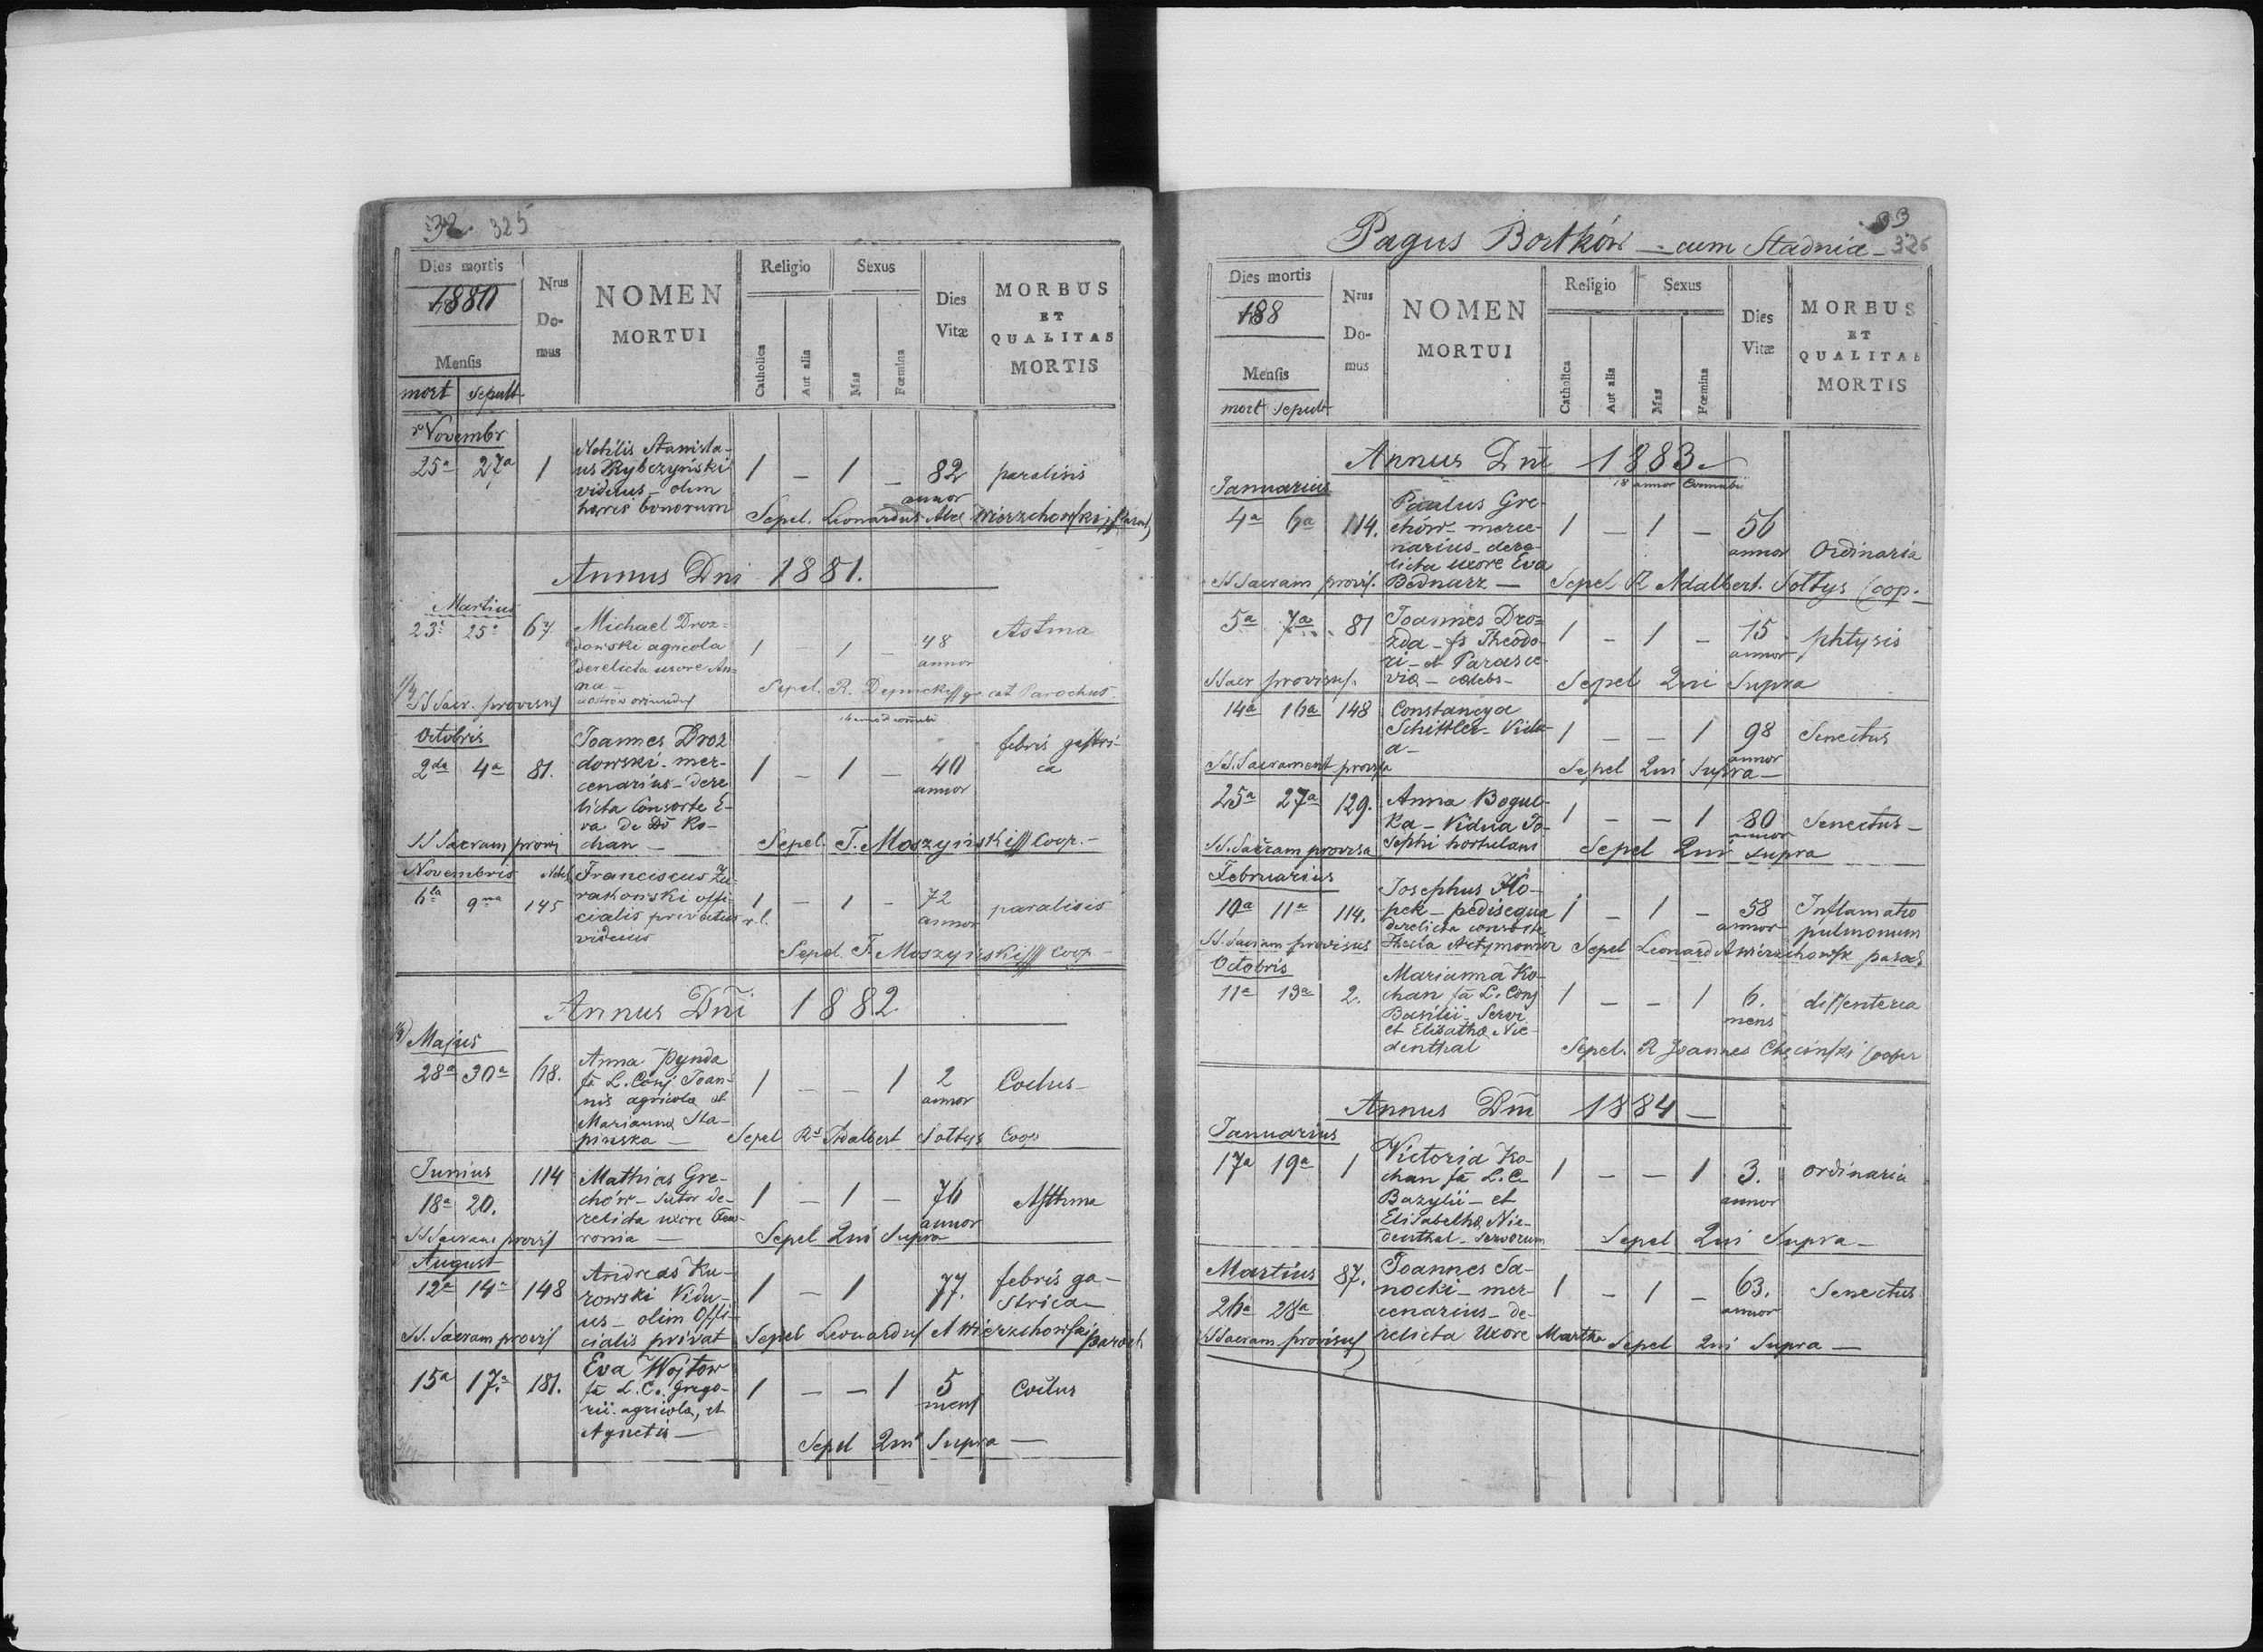 32 325
Dies mortis
1880
Mensis
mort sepult
Nrus
Do-
mus
NOMEN
MORTUI
Religio
Catholica
Aut alia
Sexus
Mas
Fœmina
Dies
Vitæ
MORBUS
ET
QUALITAS
MORTIS
Novembr
25a 27a 1
Nobilis Stanisla-
us Rybczyński
viduus - olim
hæres bonorum
1 - 1 - 82 annor paralisis
Sepel. Leonardus Alex Wierzchowski
Annus Dni 1881.
Martius
23a 25a 67
Michael Droz=
dowski agricola
derelicta uxore An=
na -
1 - 1 - 48 annor Astma
SS Sacr. provisus
Sepel. R. gr. cat Parochus
Octobris
2da 4a 81.
Joannes Droz
dowski - mer-
cenarius - dere
licta Consorte E-
va de Do Ko-
chan -
1 - 1 - 40 annor febris gastri-
ca
SS Sacram provi
Sepel. T. Moszyński Coop. -
Novembris
6ta 9na 145
Nobil Franciscus Żu-
rakowski offi-
cialis privatus
viduus
1 - 1 - 72 annor paralisis
r.l.
Sepel. T. Moszyński Coop -
Annus Dni 1882
Majus
28a 30a 68.
Anna Pynda
fa L. Conj. Joan-
nis agricolæ et
Mariannæ Sta-
pinska -
1 - - 1 2 annor
Sepel Rs Adalbert Sołtys Coop
Junius
18a 20. 114
Mathias Gre-
chów - sutor de-
relicta uxore Few-
ronia -
1 - 1 - 76 annor Asthma
SS Sacram provis
Sepel Qui Supra
August
12a 14a 148
Andreas Ku-
rowski Vidu-
us - olim Offi-
cialis privat
1 - 1 77. febris ga-
strica -
SS. Sacram provis
Sepel Leonardus A Wierzchowski paroch
15a 17a 181.
Eva Wojtow
fa L. C. Grego-
rii agricolæ, et
Agnetis -
1 - - 1 5 mens
Sepel Qui Supra -
33
Pagus Bortków - cum Stadnia - 326
Dies mortis
188
Mensis
mort sepult
Nrus
Do-
mus
NOMEN
MORTUI
Religio
Catholica
Aut alia
Sexus
Mas
Fœmina
Dies
Vitæ
MORBUS
ET
QUALITAS
MORTIS
Annus Dni 1883
18 annor Connubii
Januarius
4a 6a 114.
Paulus Gre-
chów - merce-
narius - dere-
licta uxore Eva
Bednarz -
1 - 1 - 56 annor Ordinaria
SS Sacram provis.
Sepel R Adalbert. Sołtys Coop.
5a 7a 81
Joannes Dro=
zda - fs Theodo-
ri - et Parasce-
viæ - cælebs -
1 - 1 - 15 annor phtysis
SSacr provisus.
Sepel Qui Supra
14a 16a 148
Constancya
Schittler - Vidu-
a -
1 - - 1 98 annor Senectus
SS. Sacrament provisa
Sepel Qui Supra -
25a 27a 129.
Anna Bogul-
ka - Vidua Jo-
sephi hortulani
1 - - 1 80 annor Senectus -
SS. Sacram provisa
Sepel Qui supra
Februarius
10a 11a 114.
Josephus Kło-
pek - pedisequa
derelicta consorte
Thecla
1 - 1 - 58 annor Inflamatio
pulmonum
SS. Sacram provisus
Sepel Leonard A Wierzchowsk paroch
Octobris
11a 13a 2.
Marianna Ko-
chan fa L. Conj
Basilii - Servi
et Elisathæ Nie-
denthal
1 - - 1 6. mens dissenterea
Sepel. R Joannes Chęciński Cooper
Annus Dni 1884 -
Januarius
17a 19a 1
Victoria Ko-
chan fa L. C.
Bazylii - et
Elisabethæ Nie-
denthal - servorum
1 - - 1 3. annor ordinaria
Sepel Qui Supra -
Martius
26a 28a 87.
Joannes Sa-
nocki - mer-
cenarius - de-
relicta Uxore Martha
1 - 1 - 63. annor Senectus
SSacram provisus
Sepel Qui Supra -